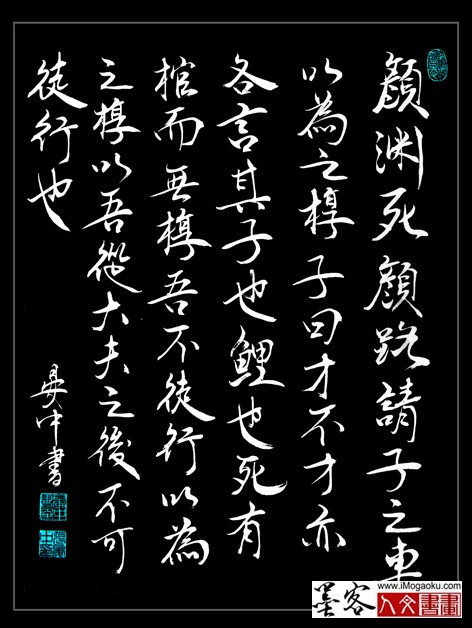 顏渊死顏路請子之車
以為之椁子曰才不才亦
各言其子也鯉也死有
棺而無椁吾不徒行以為
之椁以吾從大夫之後不可
徒行也
中書
www.iMogaoku.com
墨客
人文書畫